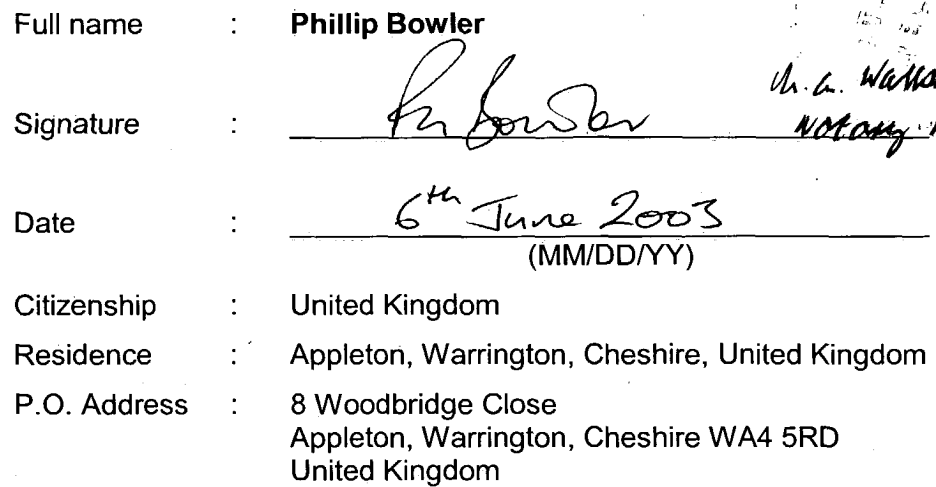 Full name : Phillip Bowler
M. A.
Signature : P Bowler
Notary
Date : 6th June 2003
(MM/DD/YY)
Citizenship : United Kingdom
Residence : Appleton, Warrington, Cheshire, United Kingdom
P.O. Address : 8 Woodbridge Close
Appleton, Warrington, Cheshire WA4 5RD
United Kingdom